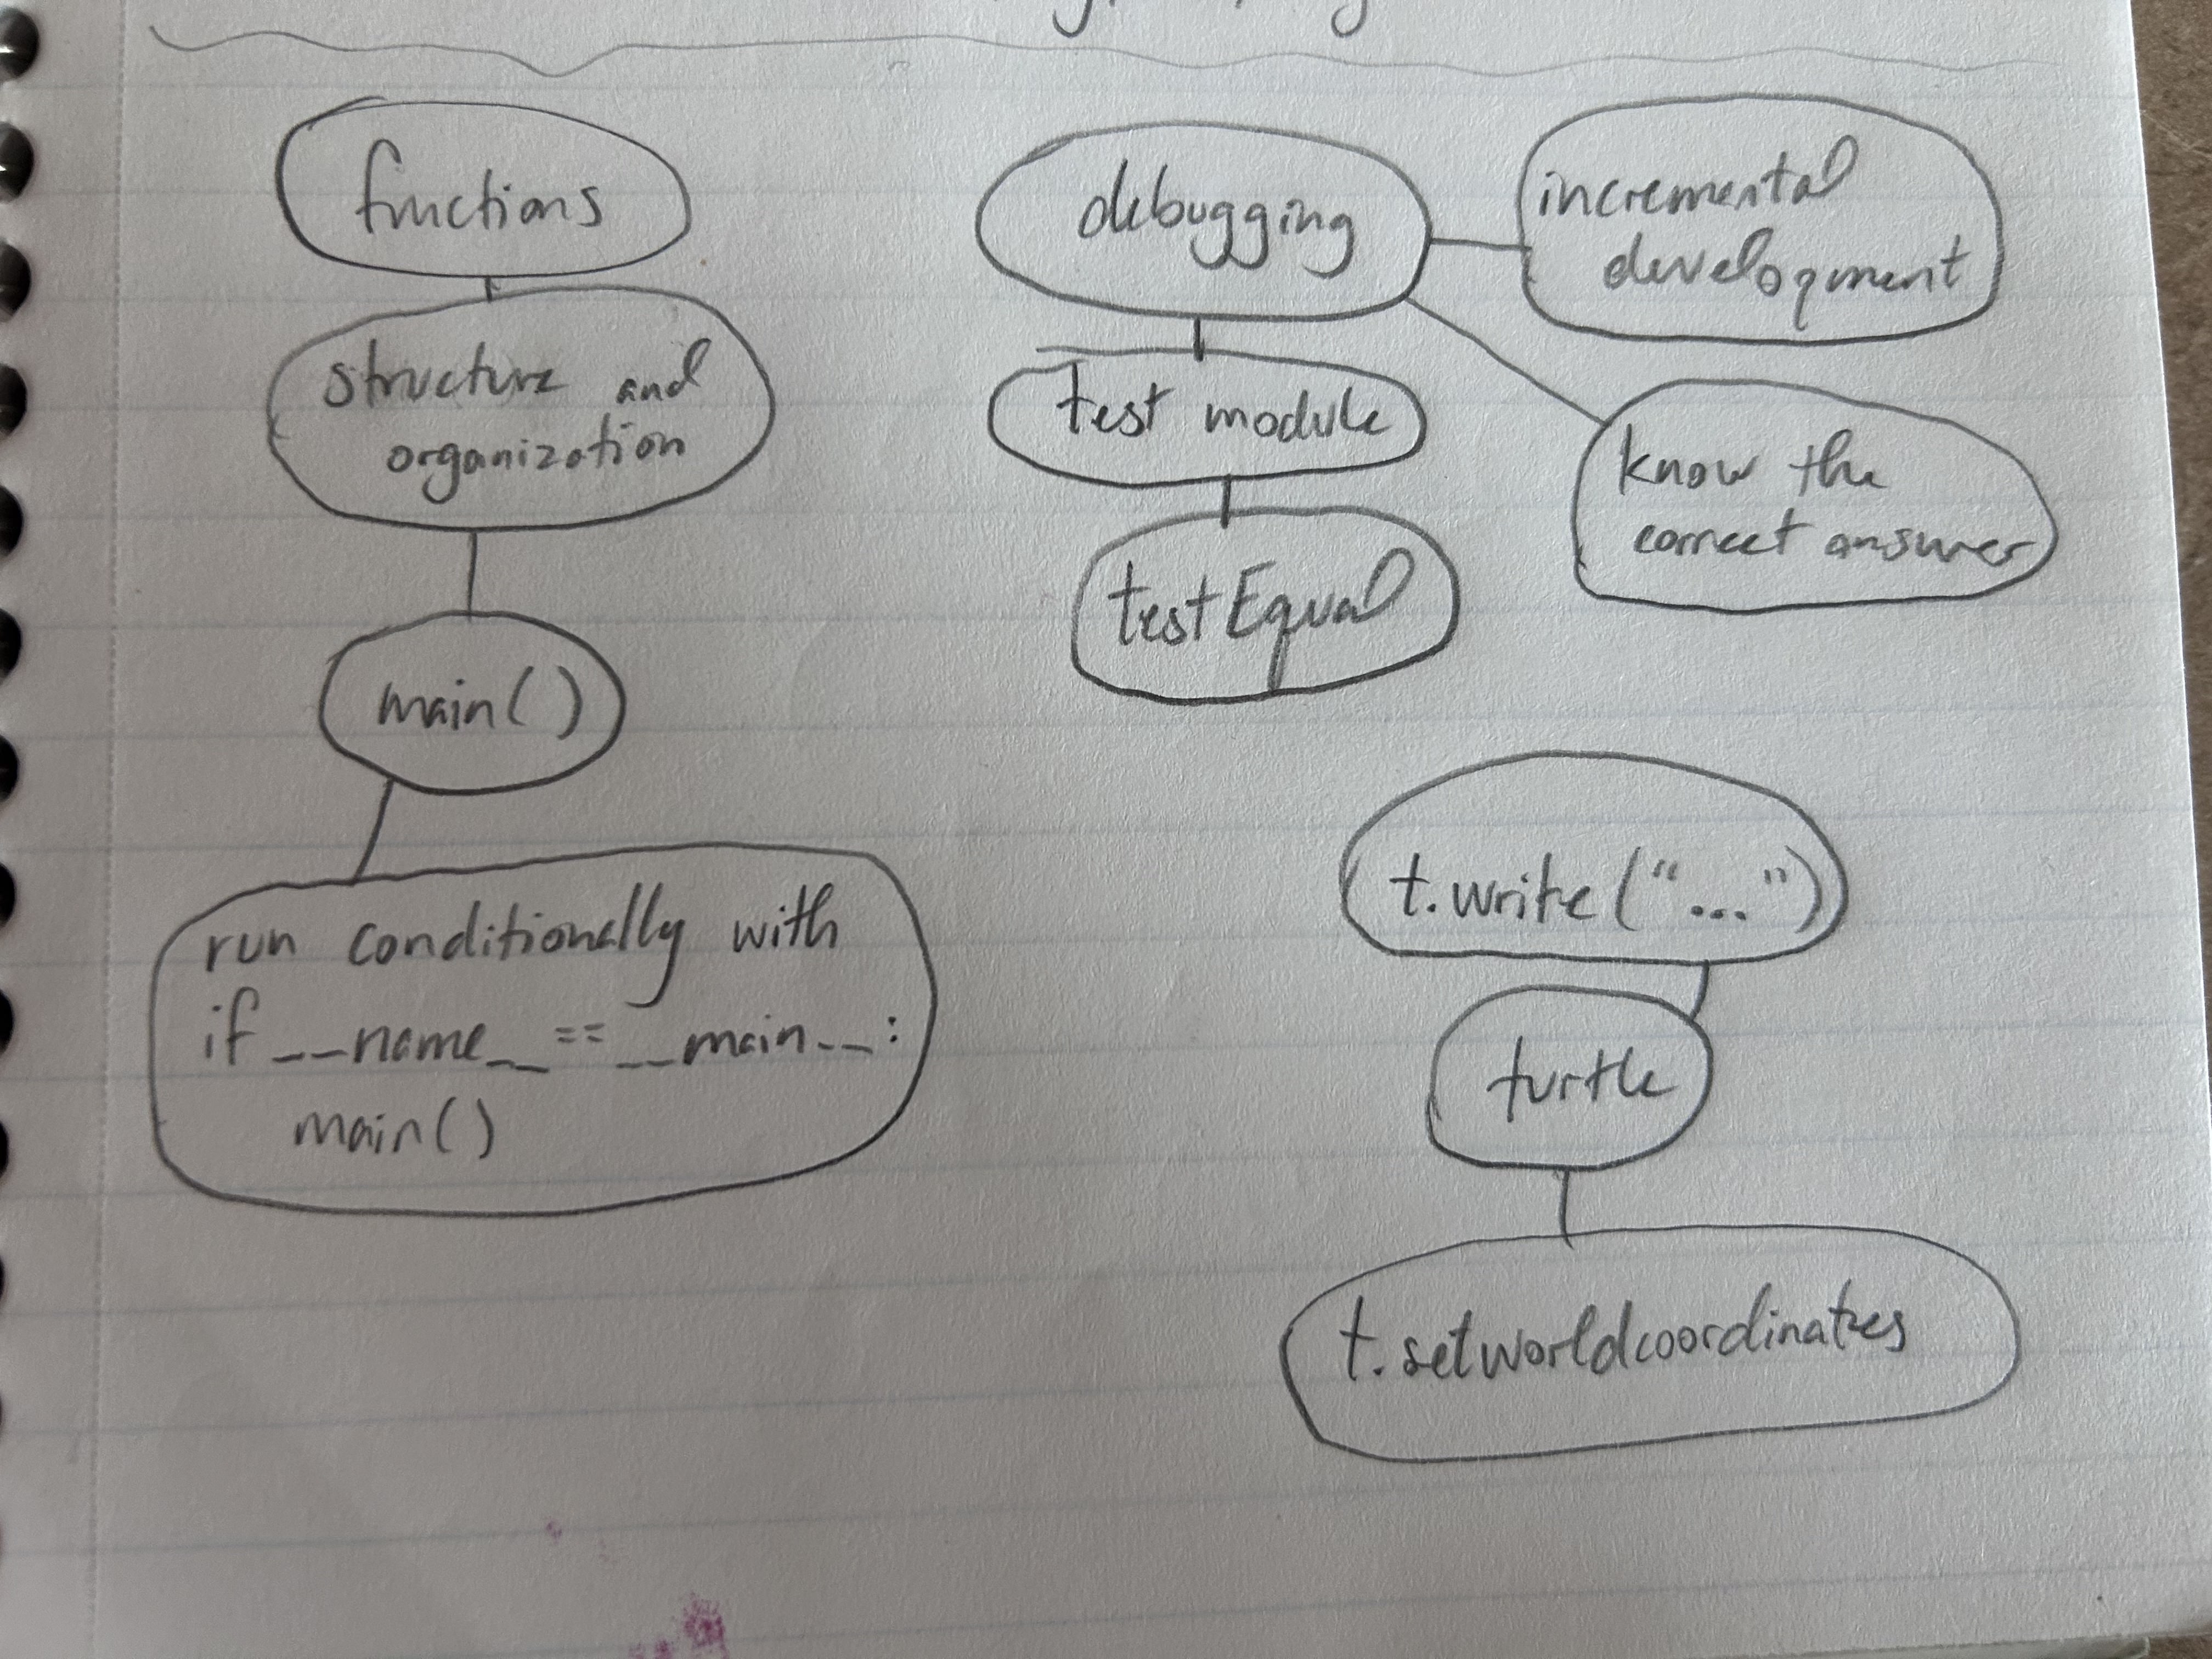 functions
structure and
organization
main()
run conditionally with
if __name__ == __main__:
main()
debugging
incremental
development
test module
know the
correct answer
testEqual
t.write("...")
turtle
t.setworldcoordinates